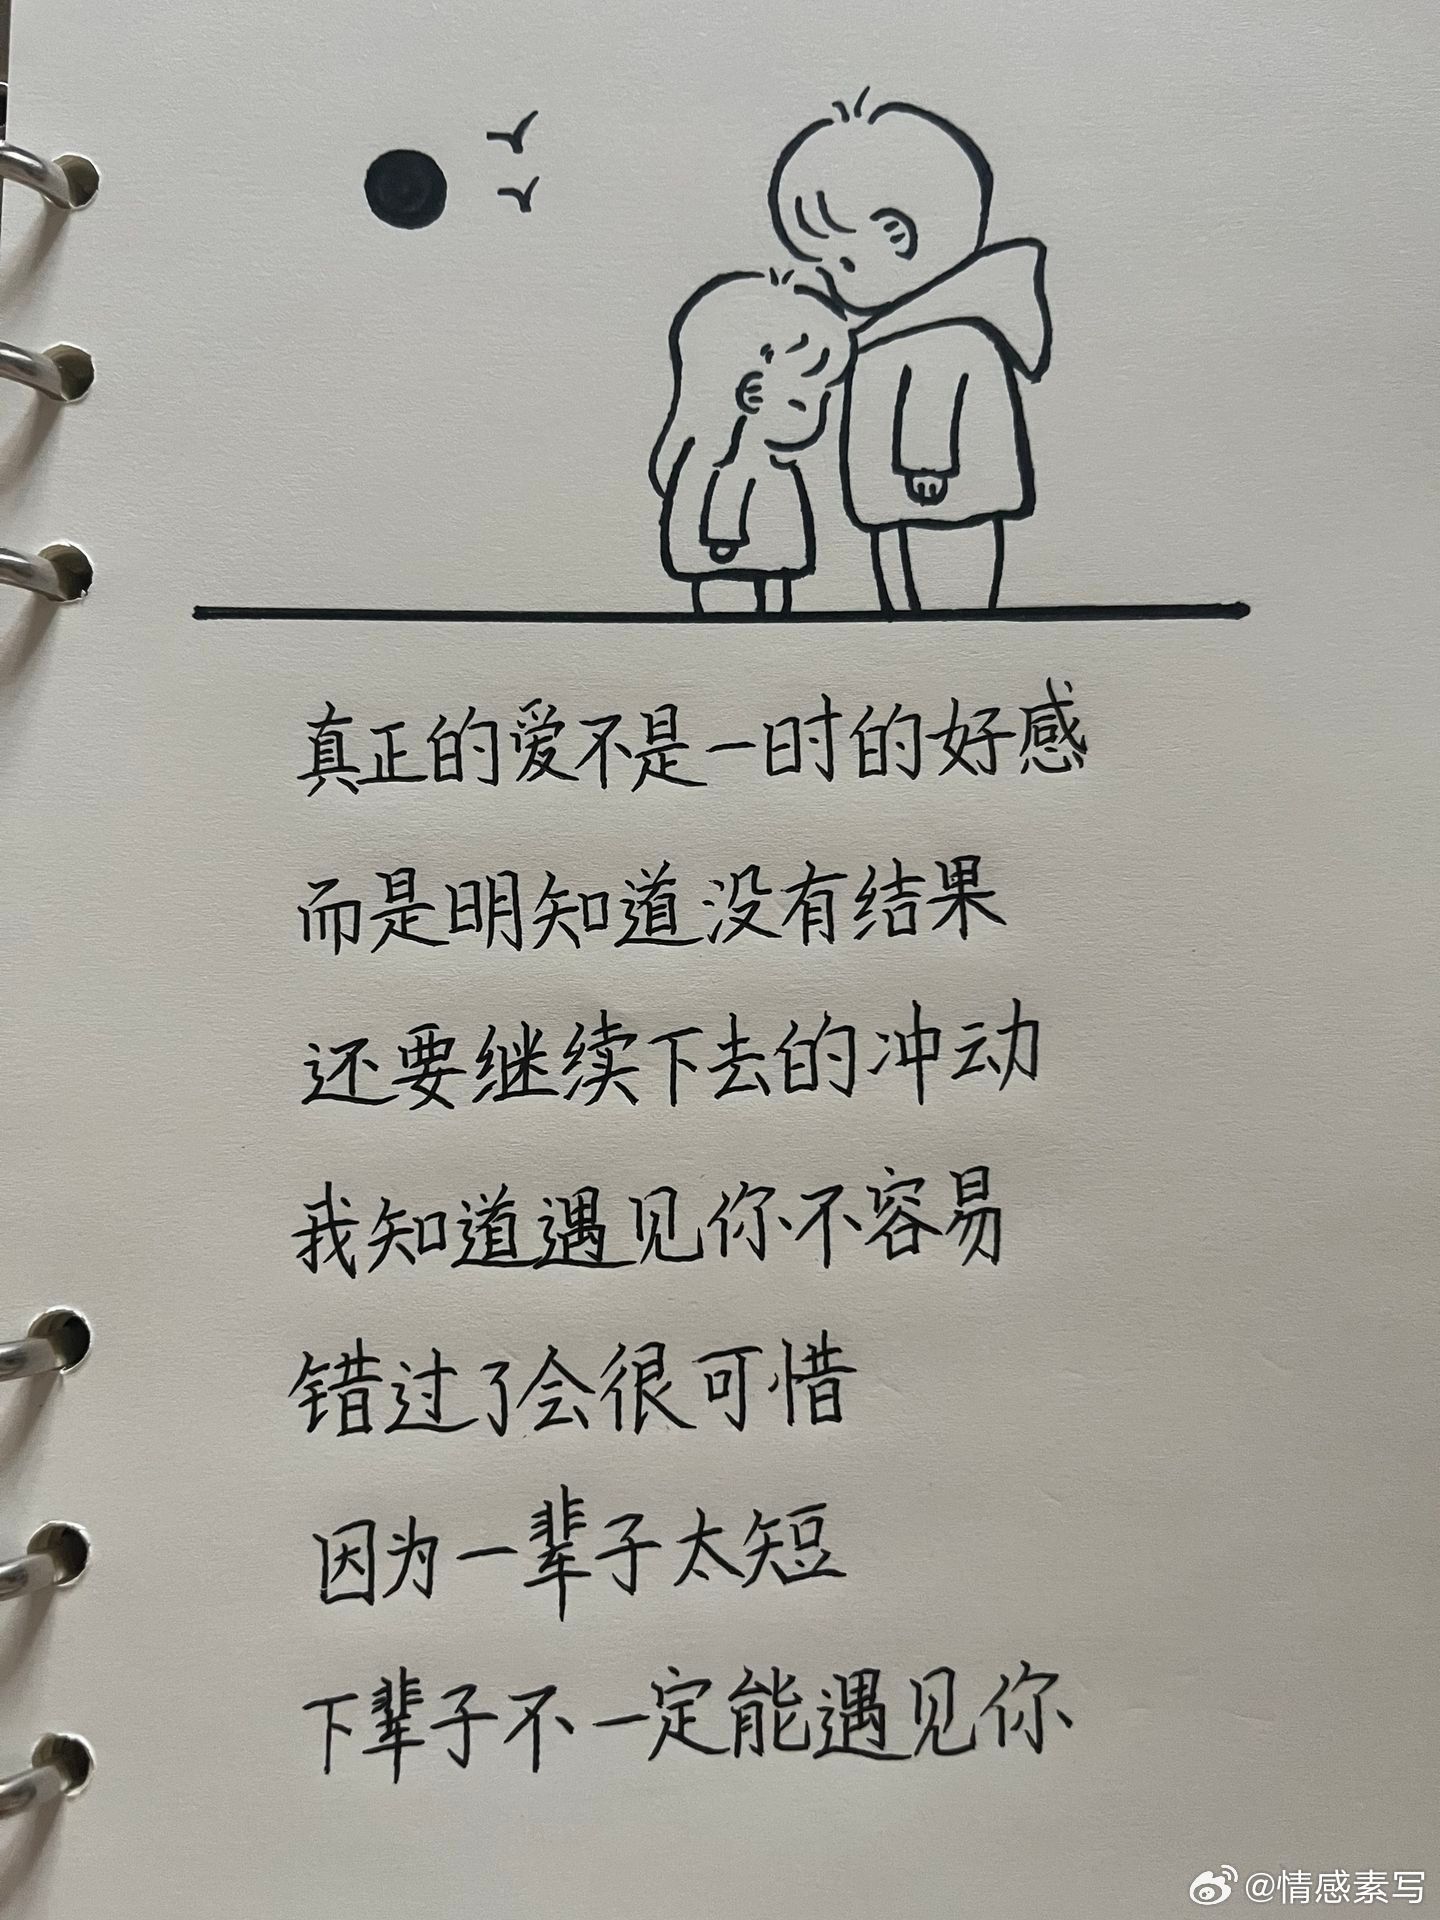 真正的爱不是一时的好感
而是明知道没有结果
还要继续下去的冲动
我知道遇见你不容易
错过了会很可惜
因为一辈子太短
下辈子不一定能遇见你
@情感素写